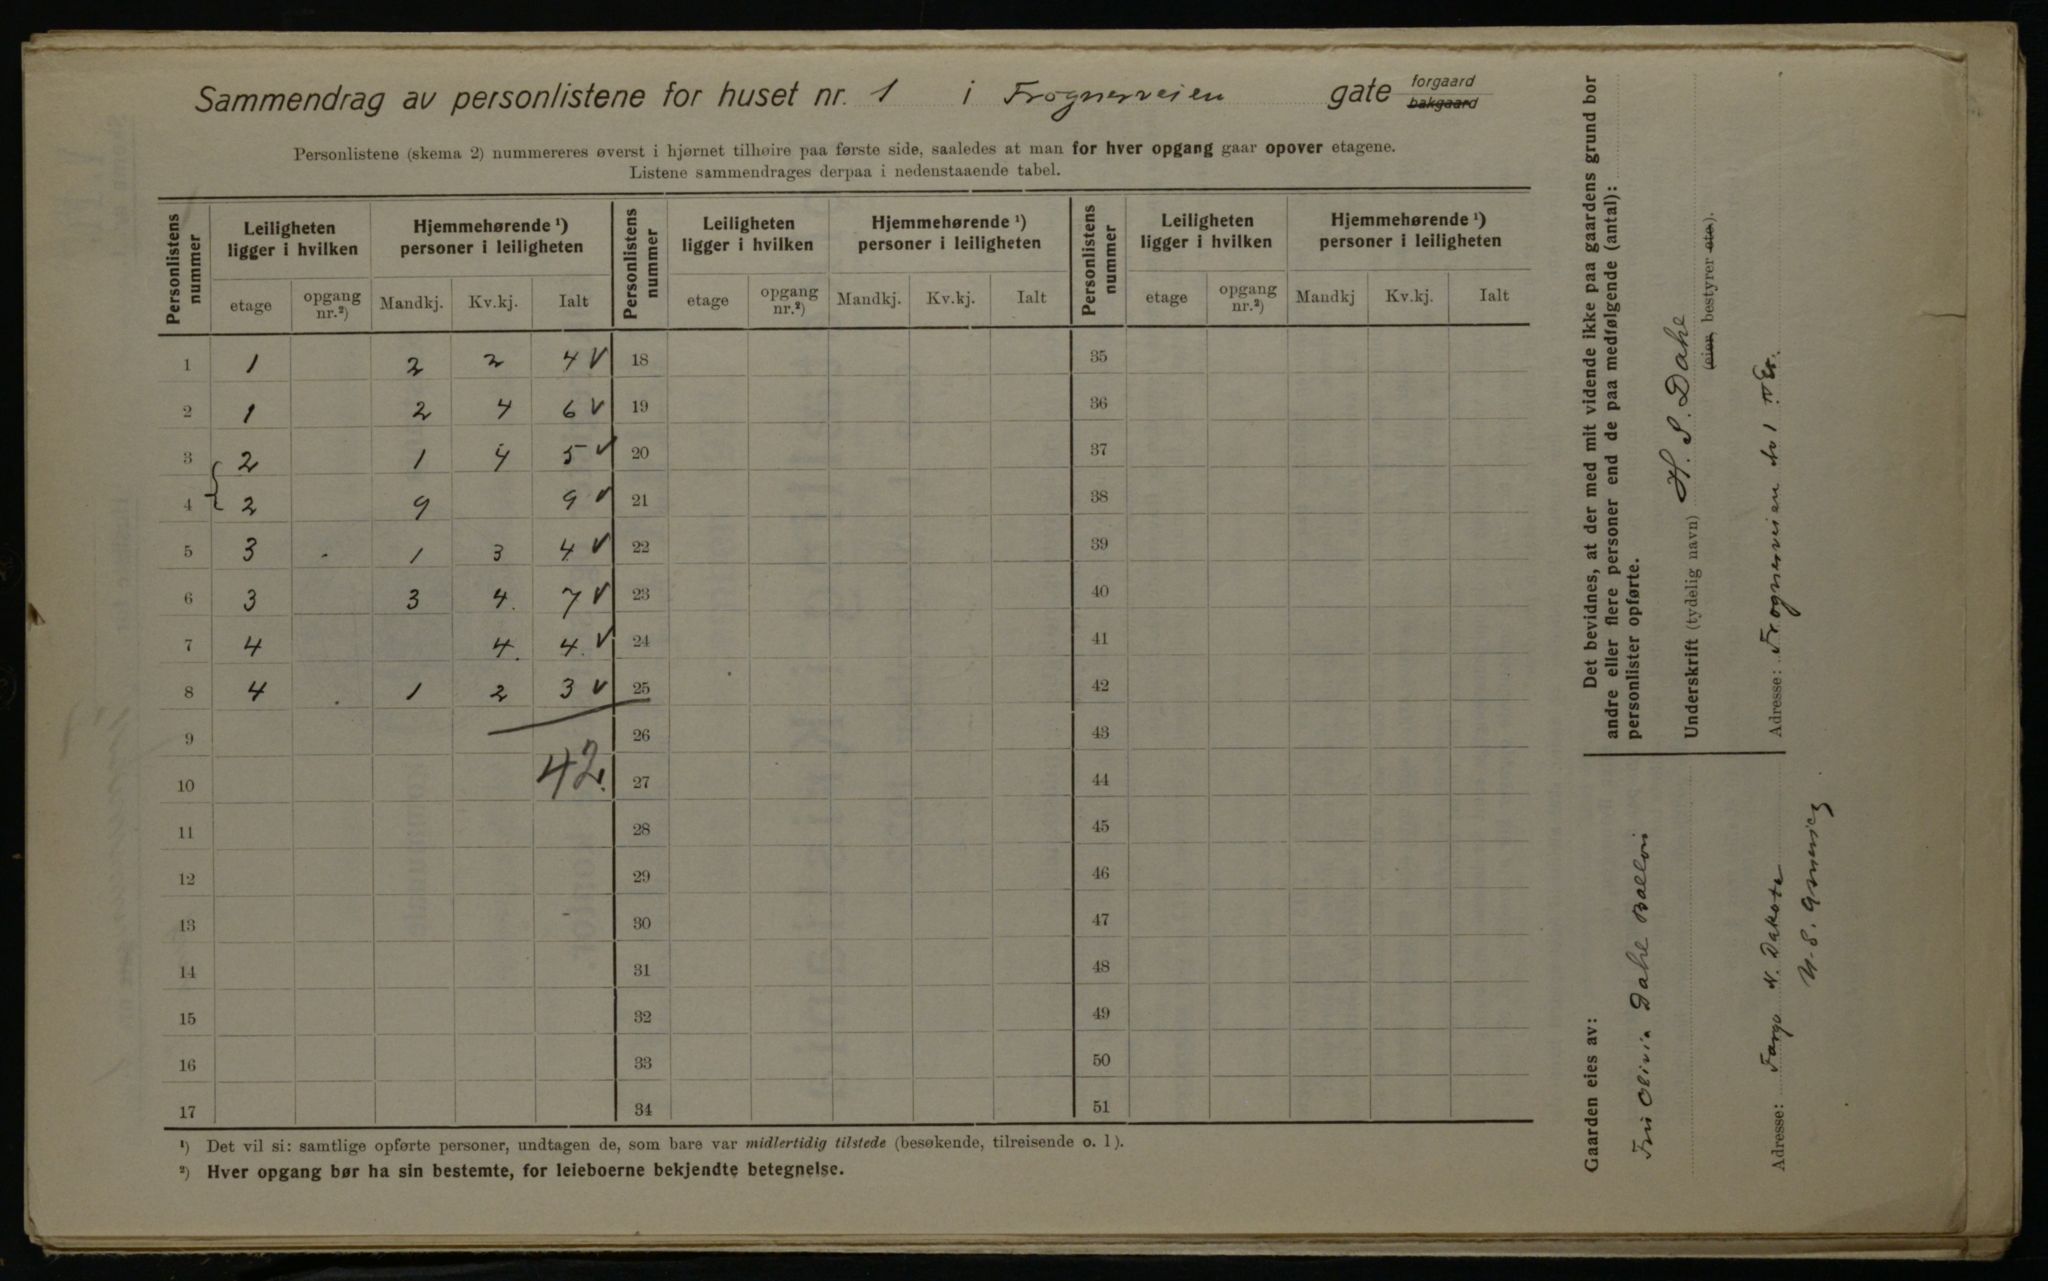 Sammendrag av personlistene for huset nr. 1 i Frognerveien gate forgaard bakgaard
Personlistene (skema 2) nummereres øverst i hjørnet tilhøire paa første side, saaledes at man for hver opgang gaar opover etagene.
Listene sammendrages derpaa i nedenstaaende tabel.
Personlistens nummer Leiligheten ligger i hvilken Hjemmehørende ¹) personer i leiligheten Personlistens nummer Leiligheten ligger i hvilken Hjemmehørende ¹) personer i leiligheten Personlistens nummer Leiligheten ligger i hvilken Hjemmehørende ¹) personer i leiligheten
etage opgang nr.²) Mandkj. Kv.kj. Ialt etage opgang nr.²) Mandkj. Kv.kj. Ialt etage opgang nr.²) Mandkj Kv.kj. Ialt
1 1 2 2 4 V 18 35
2 1 2 4 6 V 19 36
3 2 1 4 5 V 20 37
4 2 9 9 V 21 38
5 3 1 3 4 V 22 39
6 3 3 4. 7 V 23 40
7 4 4. 4. V 24 41
8 4 1 2 3 V 25 42
9 26 43
10 42. 27 44
11 28 45
12 29 46
13 30 47
14 31 48
15 32 49
16 33 50
17 34 51
¹) Det vil si: samtlige opførte personer, undtagen de, som bare var midlertidig tilstede (besøkende, tilreisende o. l).
²) Hver opgang bør ha sin bestemte, for leieboerne bekjendte betegnelse.
Det bevidnes, at der med mit vidende ikke paa gaardens grund bor
andre eller flere personer end de paa medfølgende (antal):
personlister opførte.
Underskrift (tydelig navn) H. S. Dahl
(eier, bestyrer etc).
Adresse: Frognerveien No 1
Gaarden eies av:
Fru Olivia Dahl
Adresse: Fargo N. Dakota